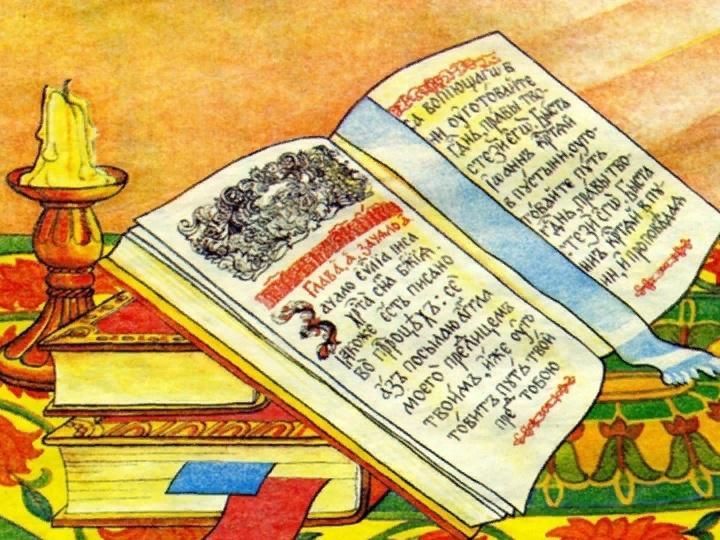 Глава, а, зачало а
Зачало єѵⷢ҇лїа іиса
хрⷭ҇та, сна бжїѧ.
ꙗкоже єсть писано
во прⷪ҇роцѣхъ: сѐ
а́зъ посылаю аггла
моегѡ̀ пред̾ лицемъ
твоимъ, и́же оуго
товитъ путь твой
пред̾ тобою
са вопїющагѡ в
ни оуготовайте
гднь, правы тво
стези єгѡ̀. Бысть
Іѡаннъ крⷭ҇тай
в пустыни, оуго
товайте путь
гднь, правы тво
стези єгѡ̀. Бысть
ннъ крⷭ҇тай в пу
ни, и проповѣдаѧ